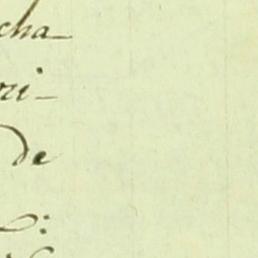 cha-
ri-
de